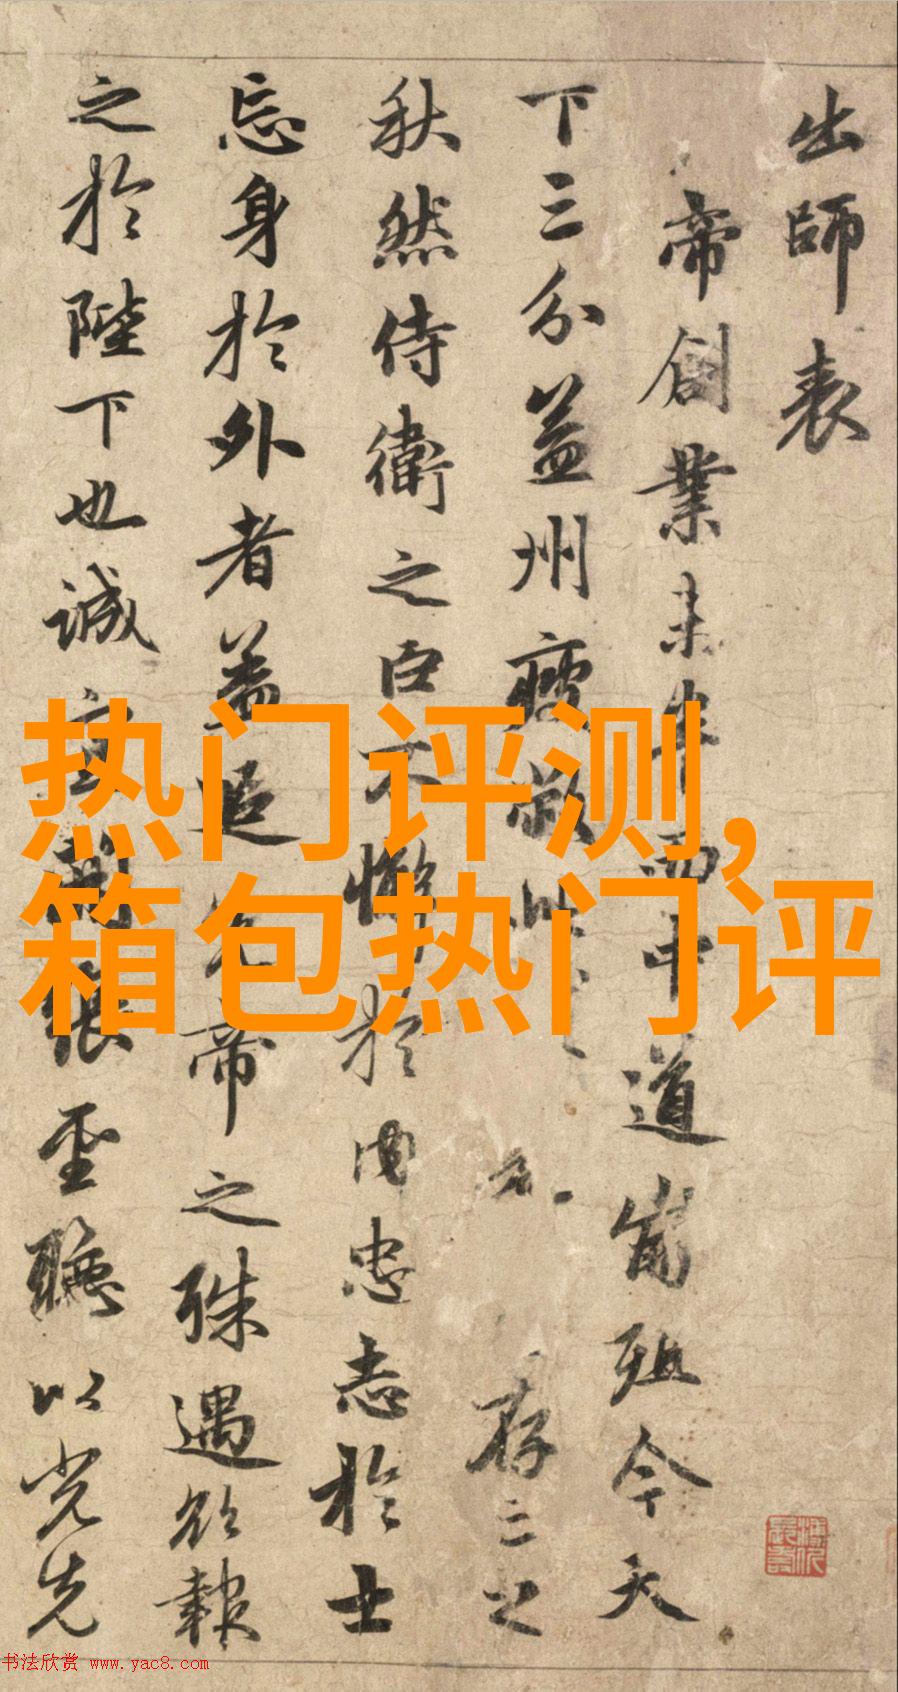 出師表
帝創業未半而中道崩殂今天
下三分益州疲敝此存之
秋然侍衛之臣不懈於内忠志於士
忘身於外者蓋追先帝之殊遇欲報
之於陛下也誠宜開張聖聽以光先
热门评测,
箱包热门评
书法欣赏 www.yac8.com